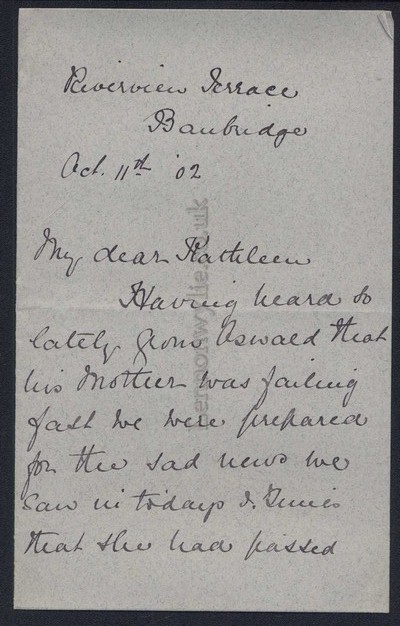 Riverview Terrace
Banbridge
Oct. 11th '02
My dear Kathleen
Having heard so
lately from Oswald that
his Mother was failing
fast we were prepared
for the sad news we
saw in todays I. Times
that she had passed